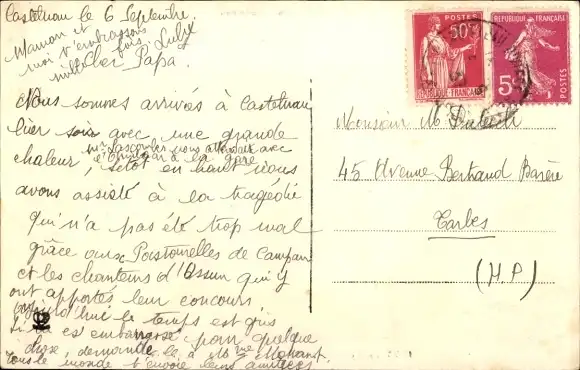 Castelnau le 6 Septembre
Maman et
moi t'embrassons
mille fois Luly
Cher Papa.
Nous sommes arrivés à Castelnau
hier soir avec une grande
chaleur, nous attendait avec
à la gare, sitôt en haut nous
avons assisté à la tragédie
qui n'a pas été trop mal
grâce aux Pastourelles de Campan
et les chanteurs d'Ossun qui y
ont apporté leur concours
aujourd'hui le temps est gris
Si tu es embarrassé pour quelque
chose, demande le à Mme
tous le monde t'envoie leurs amitiés
POSTES
50c
RÉPUBLIQUE FRANÇAISE
RÉPUBLIQUE FRANÇAISE
5c
POSTES
Monsieur M
45 Avenue Bertrand Barère
Tarbes
(H P)